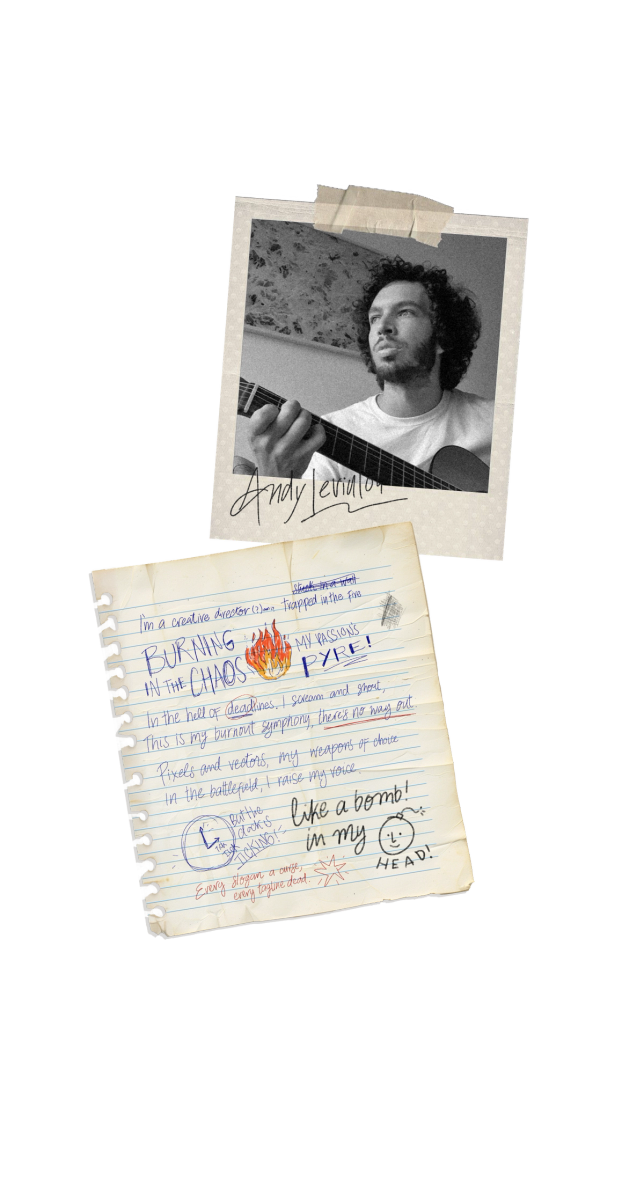 Andy
I'm a creative director (?) trapped in the fire
BURNING
IN THE CHAOS
MY PASSION'S
PYRE!
In the hell of deadlines, I scream and shout,
This is my burnout symphony, there's no way out.
Pixels and vectors, my weapons of choice
In the battlefield, I raise my voice.
But the
clock is
TICKING!
like a bomb!
in my
HEAD!
Every slogan a curse,
every tagline dead.